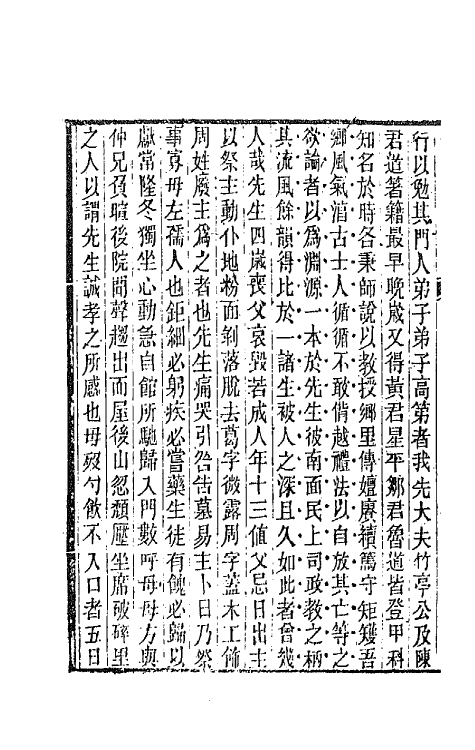 行以勉其門人弟子弟子高第者我先大夫竹亭公及陳
君道著籍最早晚歲又得黃君星平鄒君魯道皆登甲科
知名於時各秉師說以教授鄉里傳嬗賡續篤守矩矱吾
鄉風氣湻古士人循循不敢偝越禮法以自放其亡等之
欲論者以爲淵源一本於先生彼南面民上司政教之柄
其流風餘韻得比於一諸生被人之深且久如此者曾幾
人哉先生四歲喪父哀毀若成人年十三值父忌日出主
以祭主動仆地粉面剝落脫去葛字微露周字蓋木工飾
周姓廢主爲之者也先生痛哭引咎告墓易主卜日乃祭
事寡母左孺人也鉅細必躬疾必嘗藥生徒有餽必歸以
獻當隆冬獨坐心動急自館所馳歸入門數呼母母方與
仲兄負暄後院聞聲趨出而屋後山忽頹壓坐席破碎里
之人以謂先生誠孝之所感也母歿勺飲不入口者五日